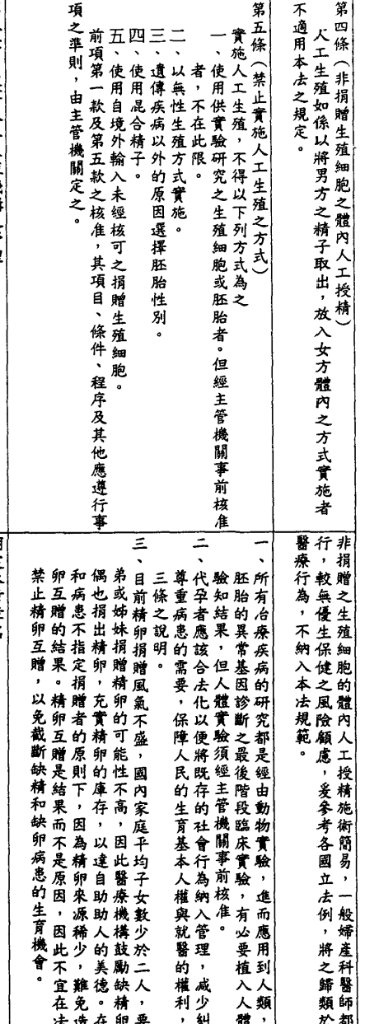 第四條（非捐贈生殖細胞之體內人工授精）
人工生殖如係以將男方之精子取出，放入女方體內之方式實施者
不適用本法之規定。
非捐贈之生殖細胞的體內人工授精施術簡易，一般婦產科醫師都
行，較無優生保健之風險顧慮，爰參考各國立法例，將之歸類於
醫療行為，不納入本法規範。
第五條（禁止實施人工生殖之方式）
實施人工生殖，不得以下列方式為之
一、使用供實驗研究之生殖細胞或胚胎者。但經主管機關事前核准
者，不在此限。
二、以無性生殖方式實施。
三、遺傳疾病以外的原因選擇胚胎性別。
四、使用混合精子。
五、使用自境外輸入未經核可之捐贈生殖細胞。
前項第一款及第五款之核准，其項目、條件、程序及其他應遵行事
項之準則，由主管機關定之。
一、所有治療疾病的研究都是經由動物實驗，進而應用到人類，
胚胎的異常基因診斷之最後階段臨床實驗，有必要植入人體
驗知結果，但人體實驗須經主管機關事前核准。
二、代孕者應該合法化以便將既存的社會行為納入管理，減少糾
尊重病患的需要，保障人民的生育基本人權與就醫的權利，
三條之說明。
三、目前精卵捐贈風氣不盛，國內家庭平均子女數少於二人，要
弟或姊妹捐贈精卵的可能性不高，因此醫療機構鼓勵缺精卵
偶也捐出精卵，充實精卵的庫存，以達自助助人的美德。在
和病患不指定捐贈者的原則下，因為精卵來源稀少，難免造
卵互贈的結果。精卵互贈是結果而不是原因，因此不宜在法
禁止精卵互贈，以免截斷缺精和缺卵病患的生育機會。